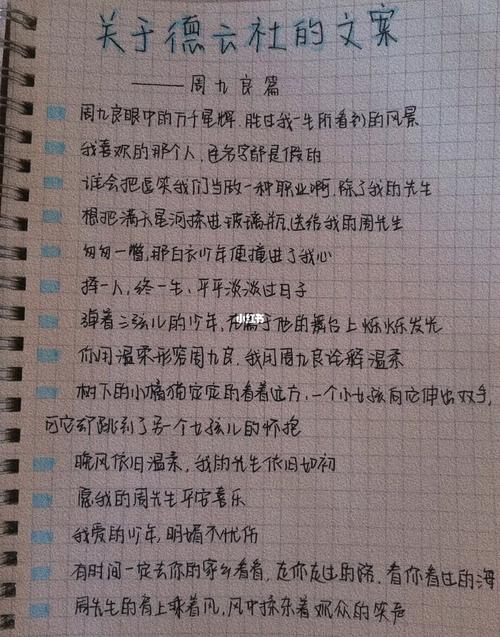 关于德云社的文案
——周九良篇
周九良眼中的万千星辉,胜过我一生所看到的风景
我喜欢的那个人,连名字都是假的
谁会把逗笑我们当做一种职业啊,除了我的先生
想把满天星河揉进玻璃瓶,送给我的周先生
匆匆一瞥,那白衣少年便撞进了我心
择一人,终一生,平平淡淡过日子
弹着三弦儿的少年,在属于他的舞台上烁烁发光
小红书
你用温柔形容周九良,我用周九良诠释温柔
树下的小橘猫定定的看着远方,一个小女孩向它伸出双手,
可它却跳到了另一个女孩儿的怀抱
晚风依旧温柔,我的先生依旧如初
愿我的周先生平安喜乐
我爱的少年,明媚不忧伤
有时间一定去你的家乡看看,走你走过的路,看你看过的海
周先生的肩上乘着风,风中掺杂着观众的笑声